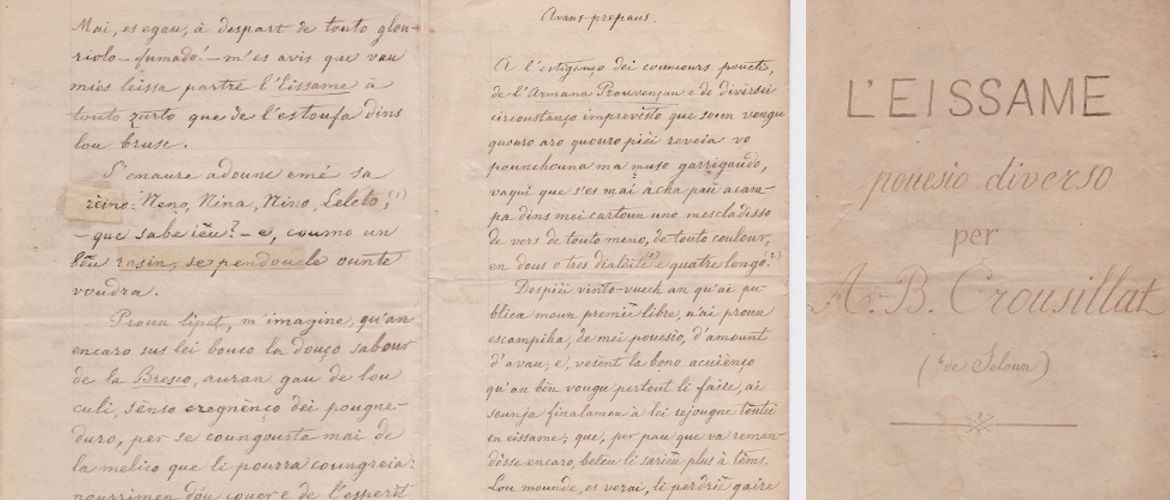 Mai, es egau, à despart de touto glou-
riolo – fumado! – m'es avis que vau
mies leissa partre l'Eissame à
touto zurto que de l'estoufa dins
lou brusc.
S'enaure adounc emé sa
rèino: Neno, Nina, Nino, Leleto, (1)
– que sabe iéu? – e, coumo un
bèu rasin, se pendoucle ounte
voudra.
Proun lipet, m'imagine, qu'an
encaro sus lei bouco la douço sabour
de la Bresco, auran gau de lou
culi, sènso cregnènço dei pougne-
duro, per se coungousta mai de
la melico que li pourra coungreia:
nourrimen dóu couer e de l'esperit
Avans-prepaus.
A l'estiganço dei councours pouèti,
de l'Armana Prouvençau e de divèrsei
circoustanço imprevisto que soun vengu
quouro aro quouro pièi reveia vo
pounchouna ma muso garrigaudo,
vaqui que s'es mai acha pau acam-
pa dins mei cartoun uno mescladisso
de vers de touto meno, de touto coulour,
en dous o tres dialèite (1) e quatre lengo. (2)
Despièi vinto-vuech an qu'ai pu-
blica moun premié libre, n'ai proun
escampiha, de mei pouesio, d'amount
d'avau; e, vesènt la bono acuienço
qu'an bèn vougu pertout li faire, ai
sounja finalamen à lei rejougne toutei
en eissame; que, per pau que va reman-
dèsse encaro, beleu li sariéu plus à tèms.
Lou mounde, es verai, li perdrié gaire
L'EISSAME
pouesio diverso
per
A.-B. Crousillat
(de Seloun)